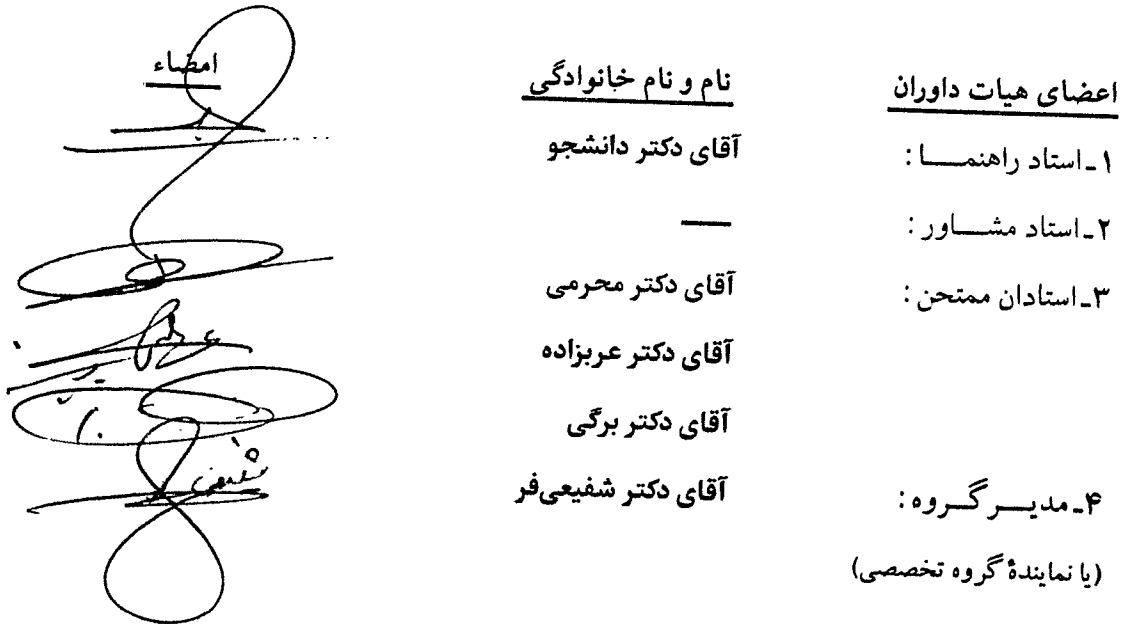 اعضای هیات داوران نام و نام خانوادگی امضاء
۱ـ استاد راهنمـــــا : آقای دکتر دانشجو
۲ـ استاد مشـــاور : —
۳ـ استادان ممتحن : آقای دکتر محرمی
آقای دکتر عربزاده
آقای دکتر برگی
۴ـ مدیـــر گـــروه : آقای دکتر شفیعی‌فر
(یا نمایندۀ گروه تخصصی)